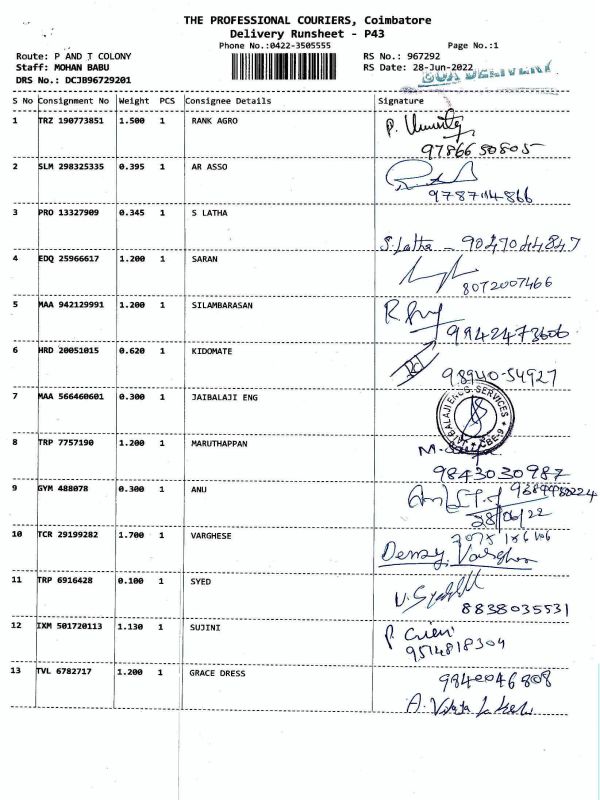 THE PROFESSIONAL COURIERS, Coimbatore
Delivery Runsheet - P43
Phone No.:0422-3505555 Page No.:1
Route: P AND T COLONY RS No.: 967292
Staff: MOHAN BABU RS Date: 28-Jun-2022
DRS No.: DCJB96729201 DELIVERY
S No Consignment No Weight PCS Consignee Details Signature
1 TRZ 190773851 1.500 1 RANK AGRO P.
9786650805
2 SLM 298325335 0.395 1 AR ASSO
9787114866
3 PRO 13327909 0.345 1 S LATHA
S. Latha - 9047044847
4 EDQ 25966617 1.200 1 SARAN
8072007466
5 MAA 942129991 1.200 1 SILAMBARASAN
9942473606
6 HRD 20051015 0.620 1 KIDOMATE
98940-54927
7 MAA 566460601 0.300 1 JAIBALAJI ENG
JAI BALAJI ENGG. SERVICES CBE-9
8 TRP 7757190 1.200 1 MARUTHAPPAN
9843030987
9 GYM 488078 0.300 1 ANU
28/06/22
10 TCR 29199282 1.700 1 VARGHESE
11 TRP 6916428 0.100 1 SYED
8838035531
12 IXM 501720113 1.130 1 SUJINI
9514818304
13 TVL 6782717 1.200 1 GRACE DRESS 9840046808
A.